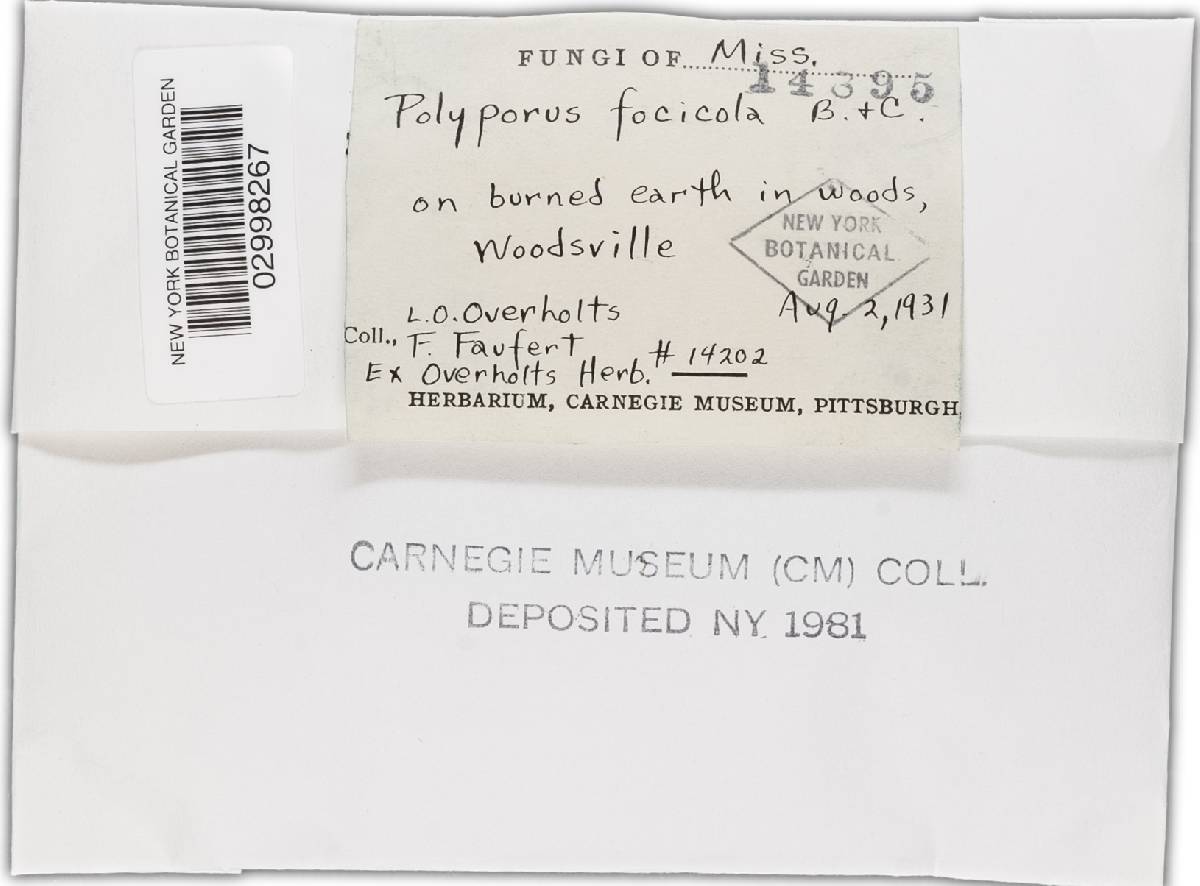 FUNGI OF Miss.
14395
Polyporus focicola B. + C.
on burned earth in woods,
Woodsville
NEW YORK
BOTANICAL
GARDEN
Aug 2, 1931
L.O. Overholts
Coll., F. Faufert
Ex Overholts Herb. # 14202
HERBARIUM, CARNEGIE MUSEUM, PITTSBURGH
NEW YORK BOTANICAL GARDEN
02998267
CARNEGIE MUSEUM (CM) COLL.
DEPOSITED NY 1981